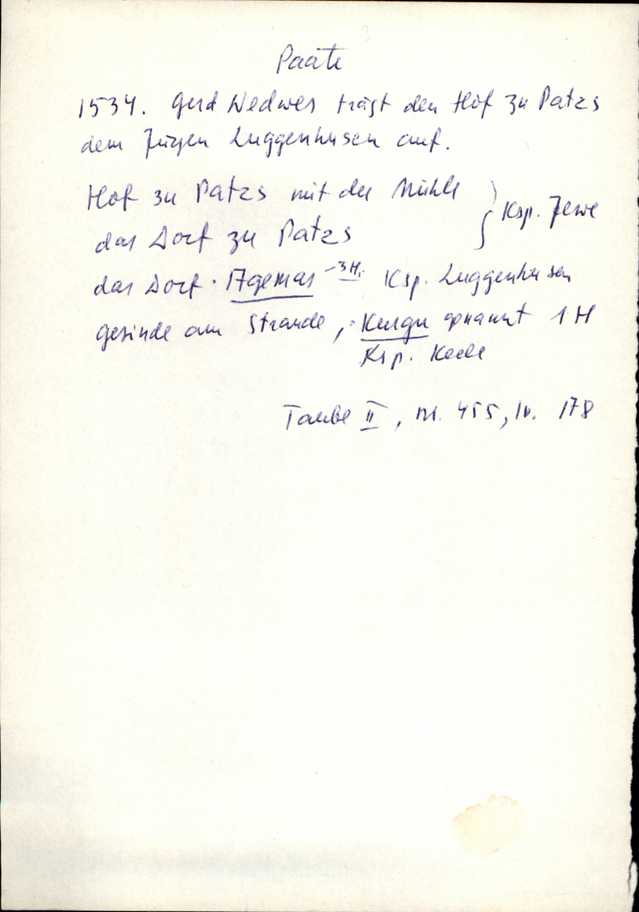 Paate
1534. Gerd Wedwes trägt den Hof zu Patzs
dem Jürgen Luggenhusen auf.
Hof zu Patzs mit der Mühle
das Dorf zu Patzs } Ksp. Jewe
das Dorf Agemas - 3 H. Ksp. Luggenhusen
gesinde am Strande, genannt 1 H
Ksp.
Taube II, nr. 455, lv. 178